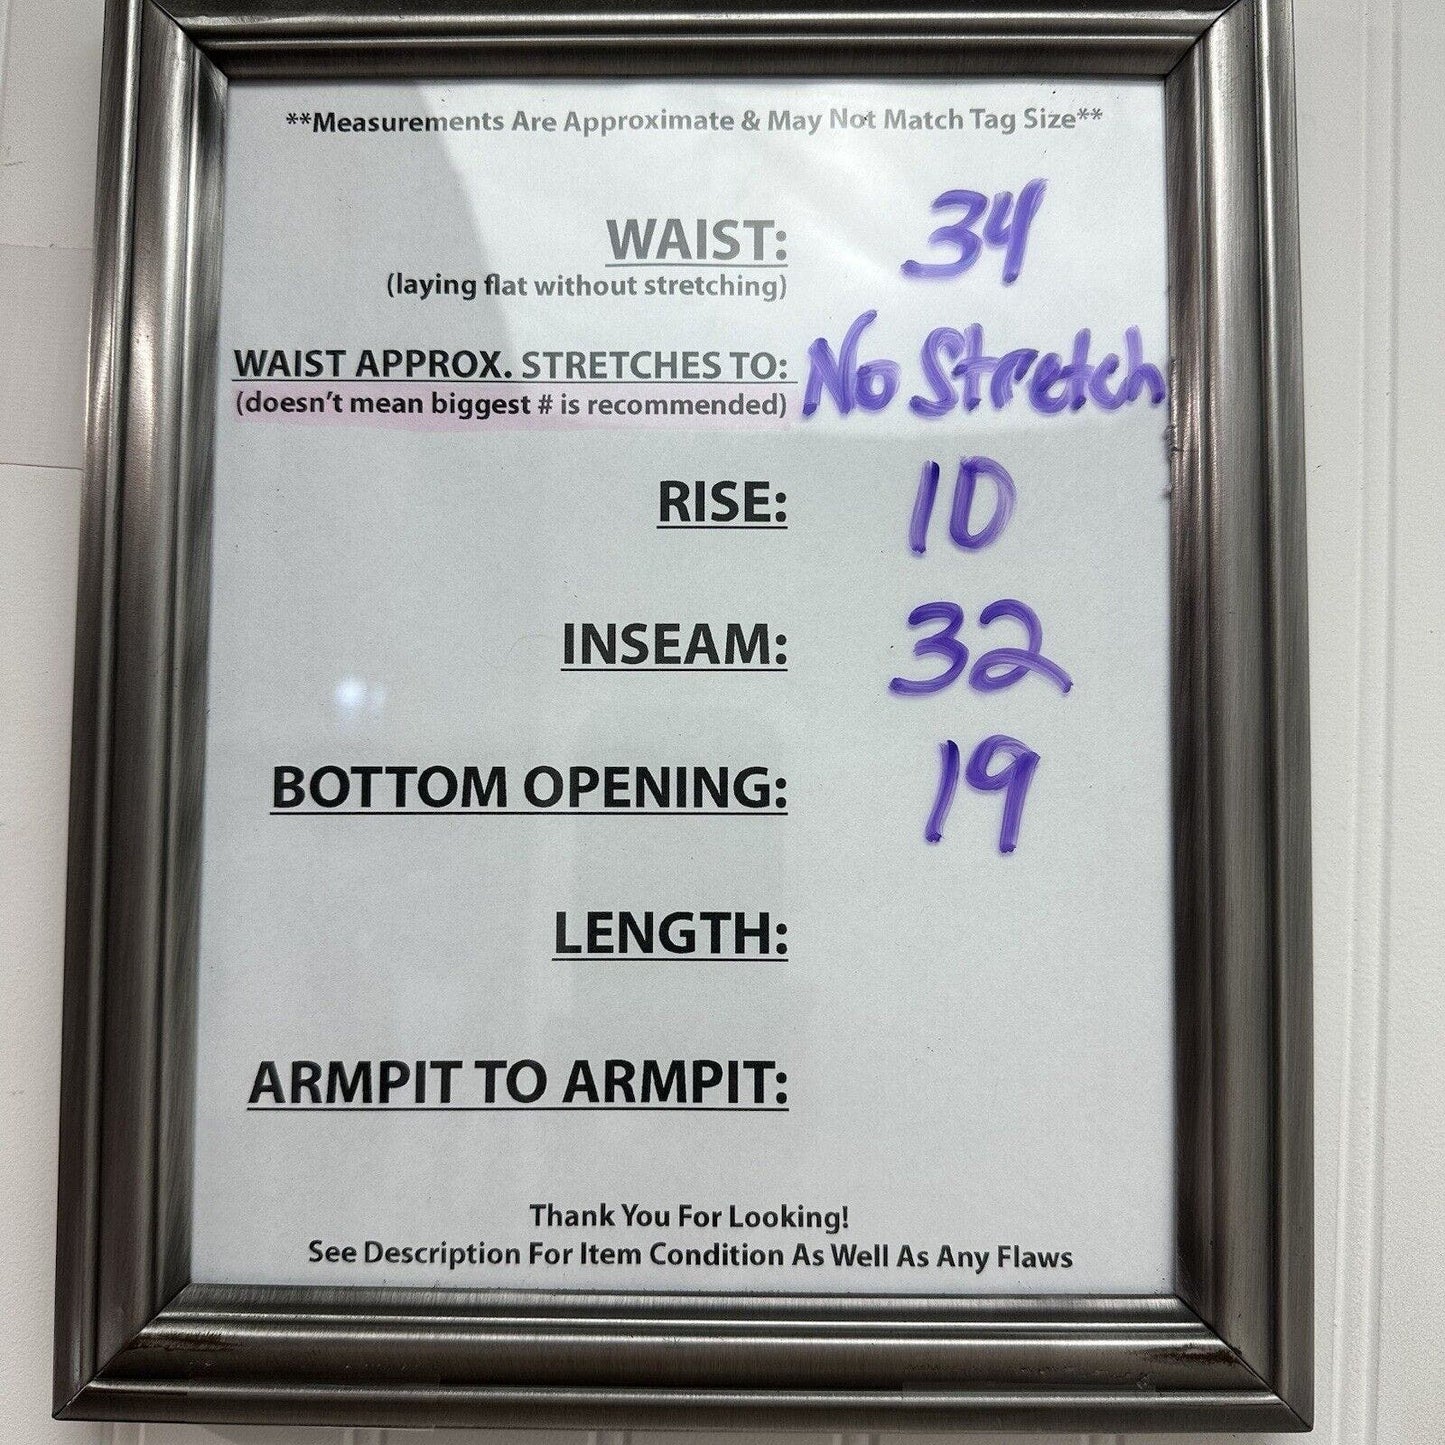 **Measurements Are Approximate & May Not Match Tag Size**
WAIST: 34
(laying flat without stretching)
WAIST APPROX. STRETCHES TO: No Stretch
(doesn't mean biggest # is recommended)
RISE: 10
INSEAM: 32
BOTTOM OPENING: 19
LENGTH:
ARMPIT TO ARMPIT:
Thank You For Looking!
See Description For Item Condition As Well As Any Flaws